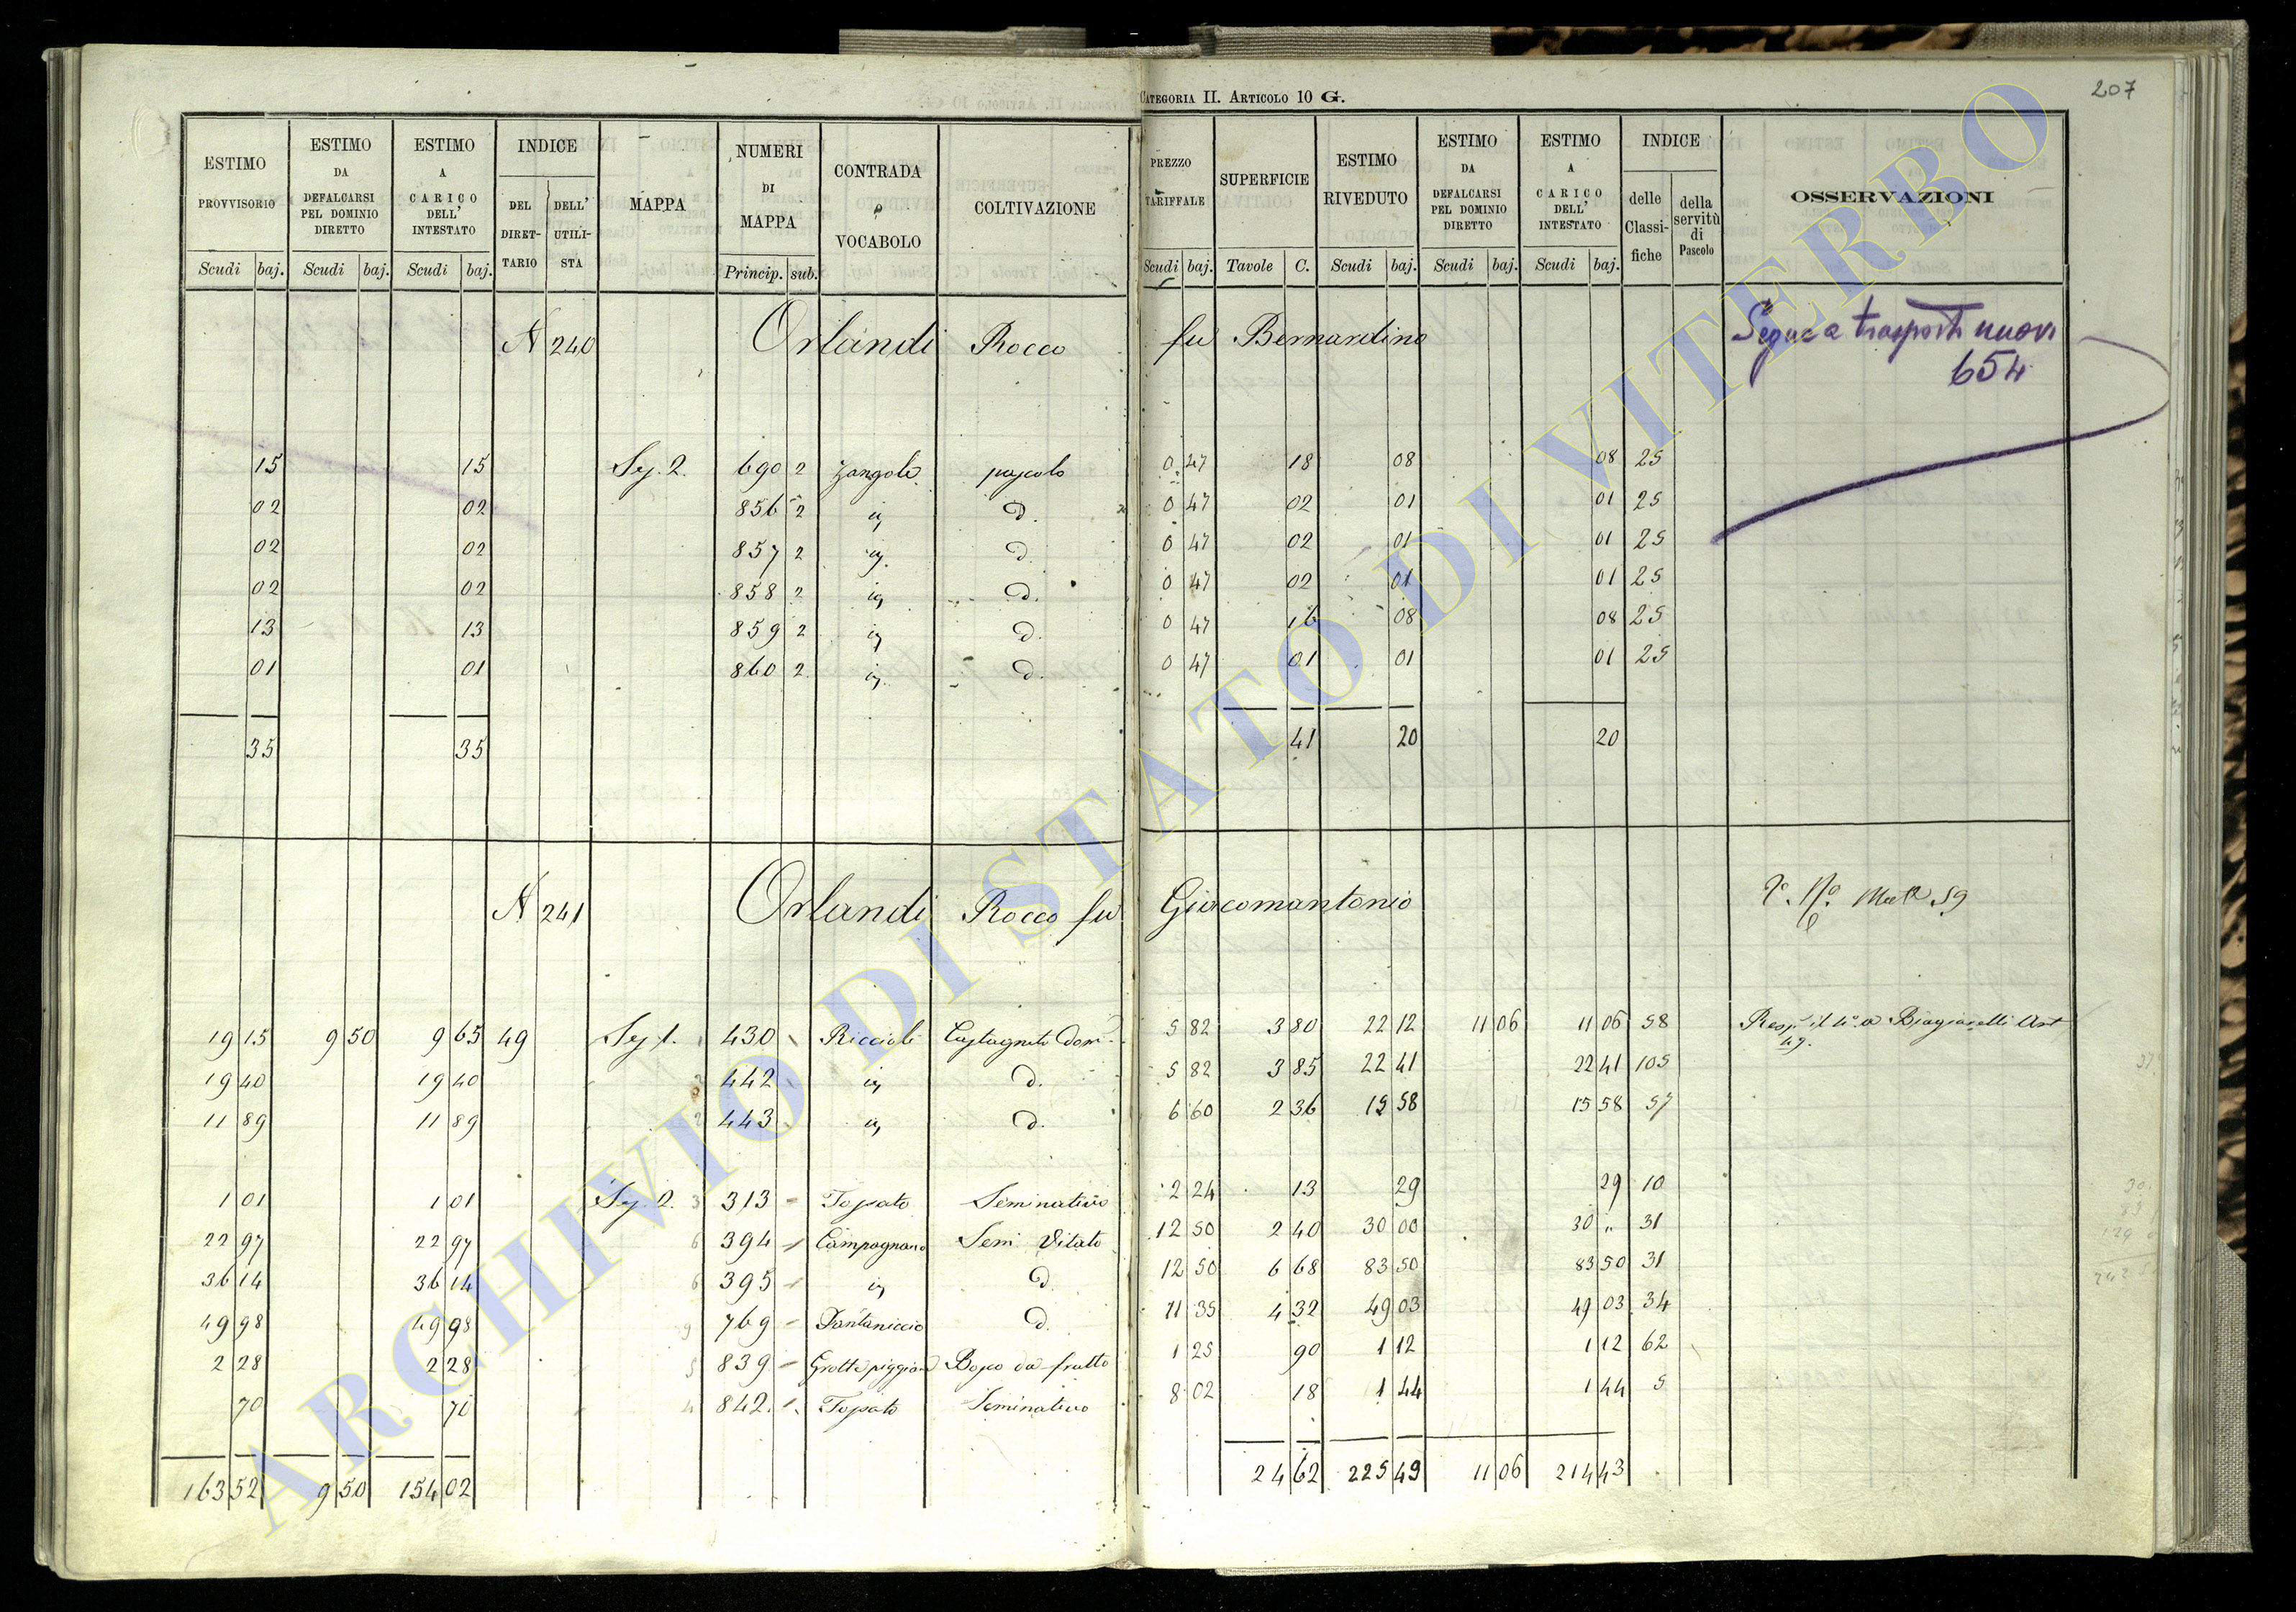 207
CATEGORIA II. ARTICOLO 10 G.
ESTIMO PROVVISORIO Scudi baj. ESTIMO DA DEFALCARSI PEL DOMINIO DIRETTO Scudi baj. ESTIMO A CARICO DELL' INTESTATO Scudi baj. INDICE DEL DIRETTARIO DELL' UTILISTA MAPPA NUMERI DI MAPPA Princip. sub. CONTRADA o VOCABOLO COLTIVAZIONE PREZZO TARIFFALE Scudi baj. SUPERFICIE Tavole C. ESTIMO RIVEDUTO Scudi baj. ESTIMO DA DEFALCARSI PEL DOMINIO DIRETTO Scudi baj. ESTIMO A CARICO DELL' INTESTATO Scudi baj. INDICE delle Classifiche della servitù di Pascolo OSSERVAZIONI
N 240 Orlandi Rocco fu Bernardino Segue a trasporti nuovi
654
15 15 Sez. 2. 690 2 Zangola pascolo 0 47 18 08 08 25
02 02 856 2 d. 0 47 02 01 01 25
02 02 857 2 d. 0 47 02 01 01 25
02 02 858 2 d. 0 47 02 01 01 25
13 13 859 2 d. 0 47 16 08 08 25
01 01 860 2 d. 0 47 01 01 01 25
35 35 41 20 20
N 241 Orlandi Rocco fu Giacomantonio 59
19 15 9 50 9 65 49 Sez 1. 430 Riccioli Castagneto Dom. 5 82 3 80 22 12 11 06 11 06 58 a Biagiarelli Ant
49.
19 40 19 40 442 d. 5 82 3 85 22 41 22 41 105
11 89 11 89 443 d. 6 60 2 36 15 58 15 58 57
1 01 1 01 Sez. 2. 3 313 Topato Seminativo 2 24 13 29 29 10
22 97 22 97 6 394 Campagnano Sem. Vitato 12 50 2 40 30 00 30 „ 31
36 14 36 14 6 395 d. 12 50 6 68 83 50 83 50 31
49 98 49 98 9 769 Fontaniccio d. 11 35 4 32 49 03 49 03 34
2 28 2 28 5 839 Bosco da frutto 1 25 90 1 12 1 12 62
70 70 4 842 Topato Seminativo 8 02 18 1 44 1 44 5
163 52 9 50 154 02 24 62 225 49 11 06 214 43
ARCHIVIO DI STATO DI VITERBO